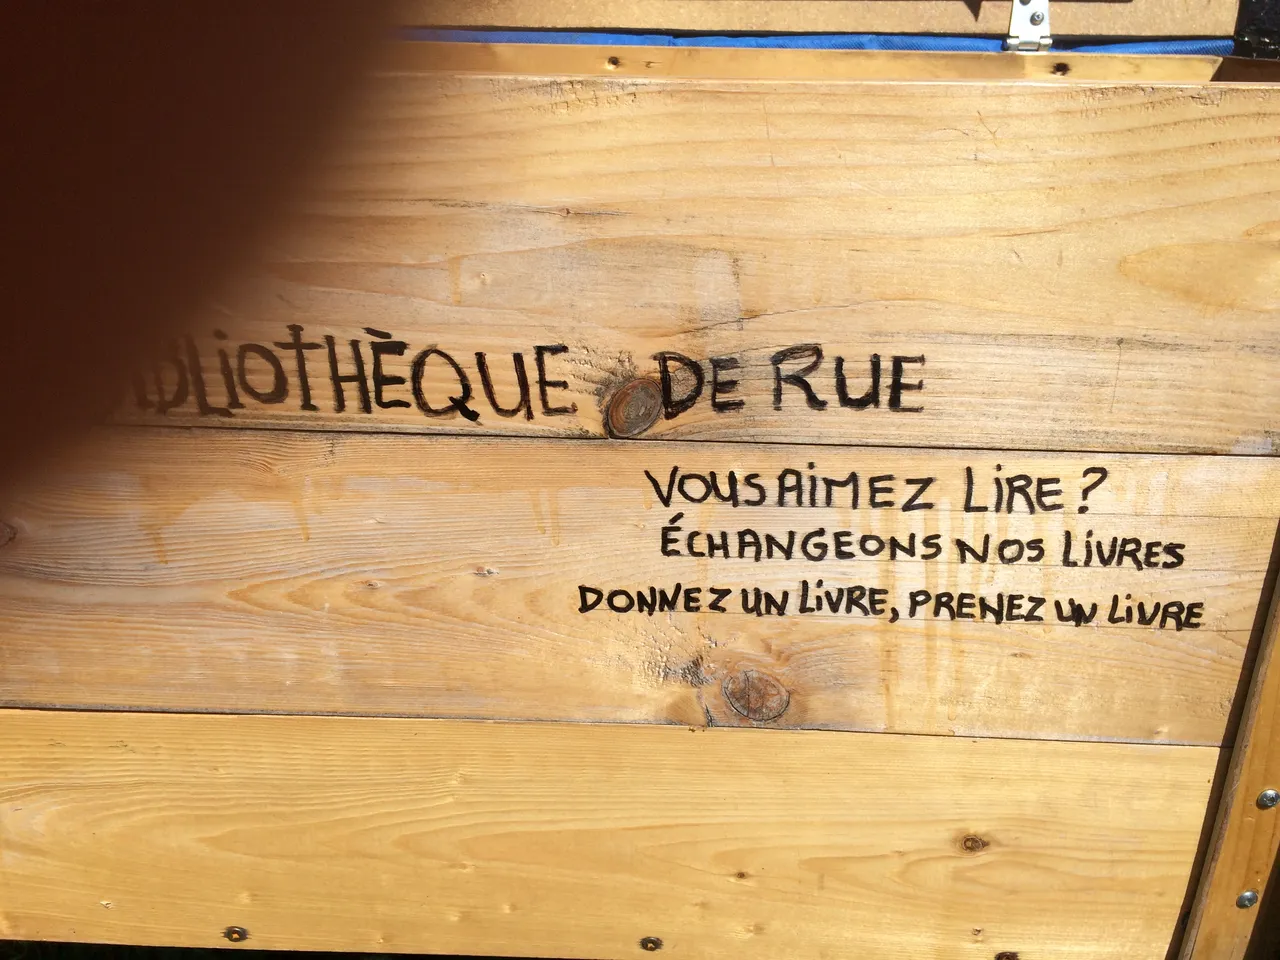 BIBLIOTHÈQUE DE RUE
VOUS AIMEZ LIRE ?
ÉCHANGEONS NOS LIVRES
DONNEZ UN LIVRE, PRENEZ UN LIVRE